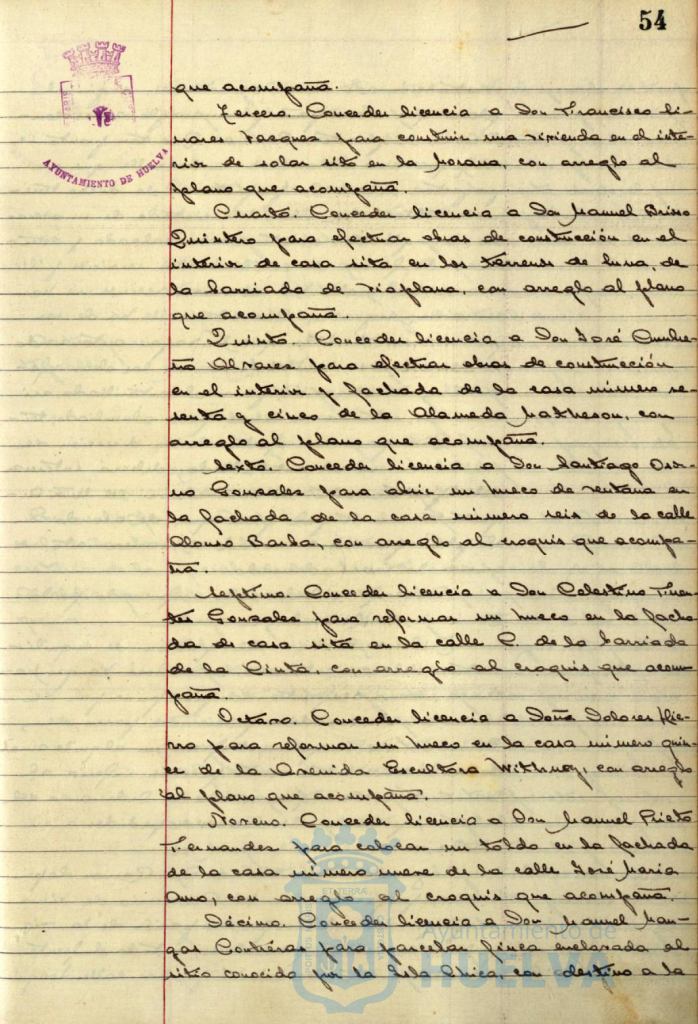 54
AYUNTAMIENTO DE HUELVA
que acompaña.
Tercero. Conceder licencia a Don Francisco Li-
nares Vazquez para construir una vivienda en el inte-
rior de solar sito en la Morana, con arreglo al
plano que acompaña.
Cuarto. Conceder licencia a Don Manuel Brioso
Quintero para efectuar obras de construcción en el
interior de casa sita en los terrenos de Luna, de
la barriada de Viaplana, con arreglo al plano
que acompaña.
Quinto. Conceder licencia a Don José Cumbre-
ño Alvarez para efectuar obras de construcción
en el interior y fachada de la casa número se-
senta y cinco de la Alameda Matheson, con
arreglo al plano que acompaña.
Sexto. Conceder licencia a Don Santiago Osor-
no Gonzalez para abrir un hueco de ventana en
la fachada de la casa número seis de la calle
Alonso Barba, con arreglo al croquis que acompa-
ña.
Septimo. Conceder licencia a Don Celestino Fuen-
tes Gonzalez para reformar un hueco en la facha-
da de casa sita en la calle C. de la barriada
de la Cinta, con arreglo al croquis que acom-
paña.
Octavo. Conceder licencia a Doña Dolores Hie-
rro para reformar un hueco en la casa número quin-
ce de la Avenida Escultora Withney, con arreglo
al plano que acompaña.
Noveno. Conceder licencia a Don Manuel Prieto
Fernandez para colocar un toldo en la fachada
de la casa número nueve de la calle José Maria
Amo, con arreglo al croquis que acompaña.
Décimo. Conceder licencia a Don Manuel Man-
gas Contreras para parcelar finca enclavada al
sitio conocido por la Isla Chica, con destino a la
Ayuntamiento de
HUELVA